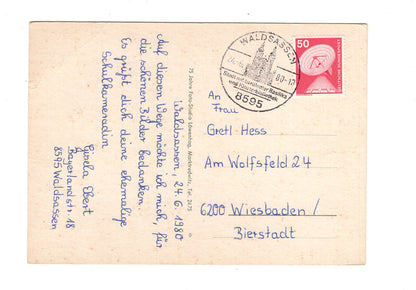 Waldsassen, 24.6.1980
Auf diesem Wege möchte ich mich, für
die schönen Bilder bedanken.
Es grüßt dich deine ehemalige
Schulkameradin
Gisela Ebert
Bayerlandstr. 18
8595 Waldsassen
75 Jahre Foto-Studio Marktredwitz, Tel. 2675
WALDSASSEN
80-17
Stadt mit
Basilika
8595
50
DEUTSCHE BUNDESPOST
An
Frau
Gretl-Hess
Am Wolfsfeld 24
6200 Wiesbaden/
Bierstadt